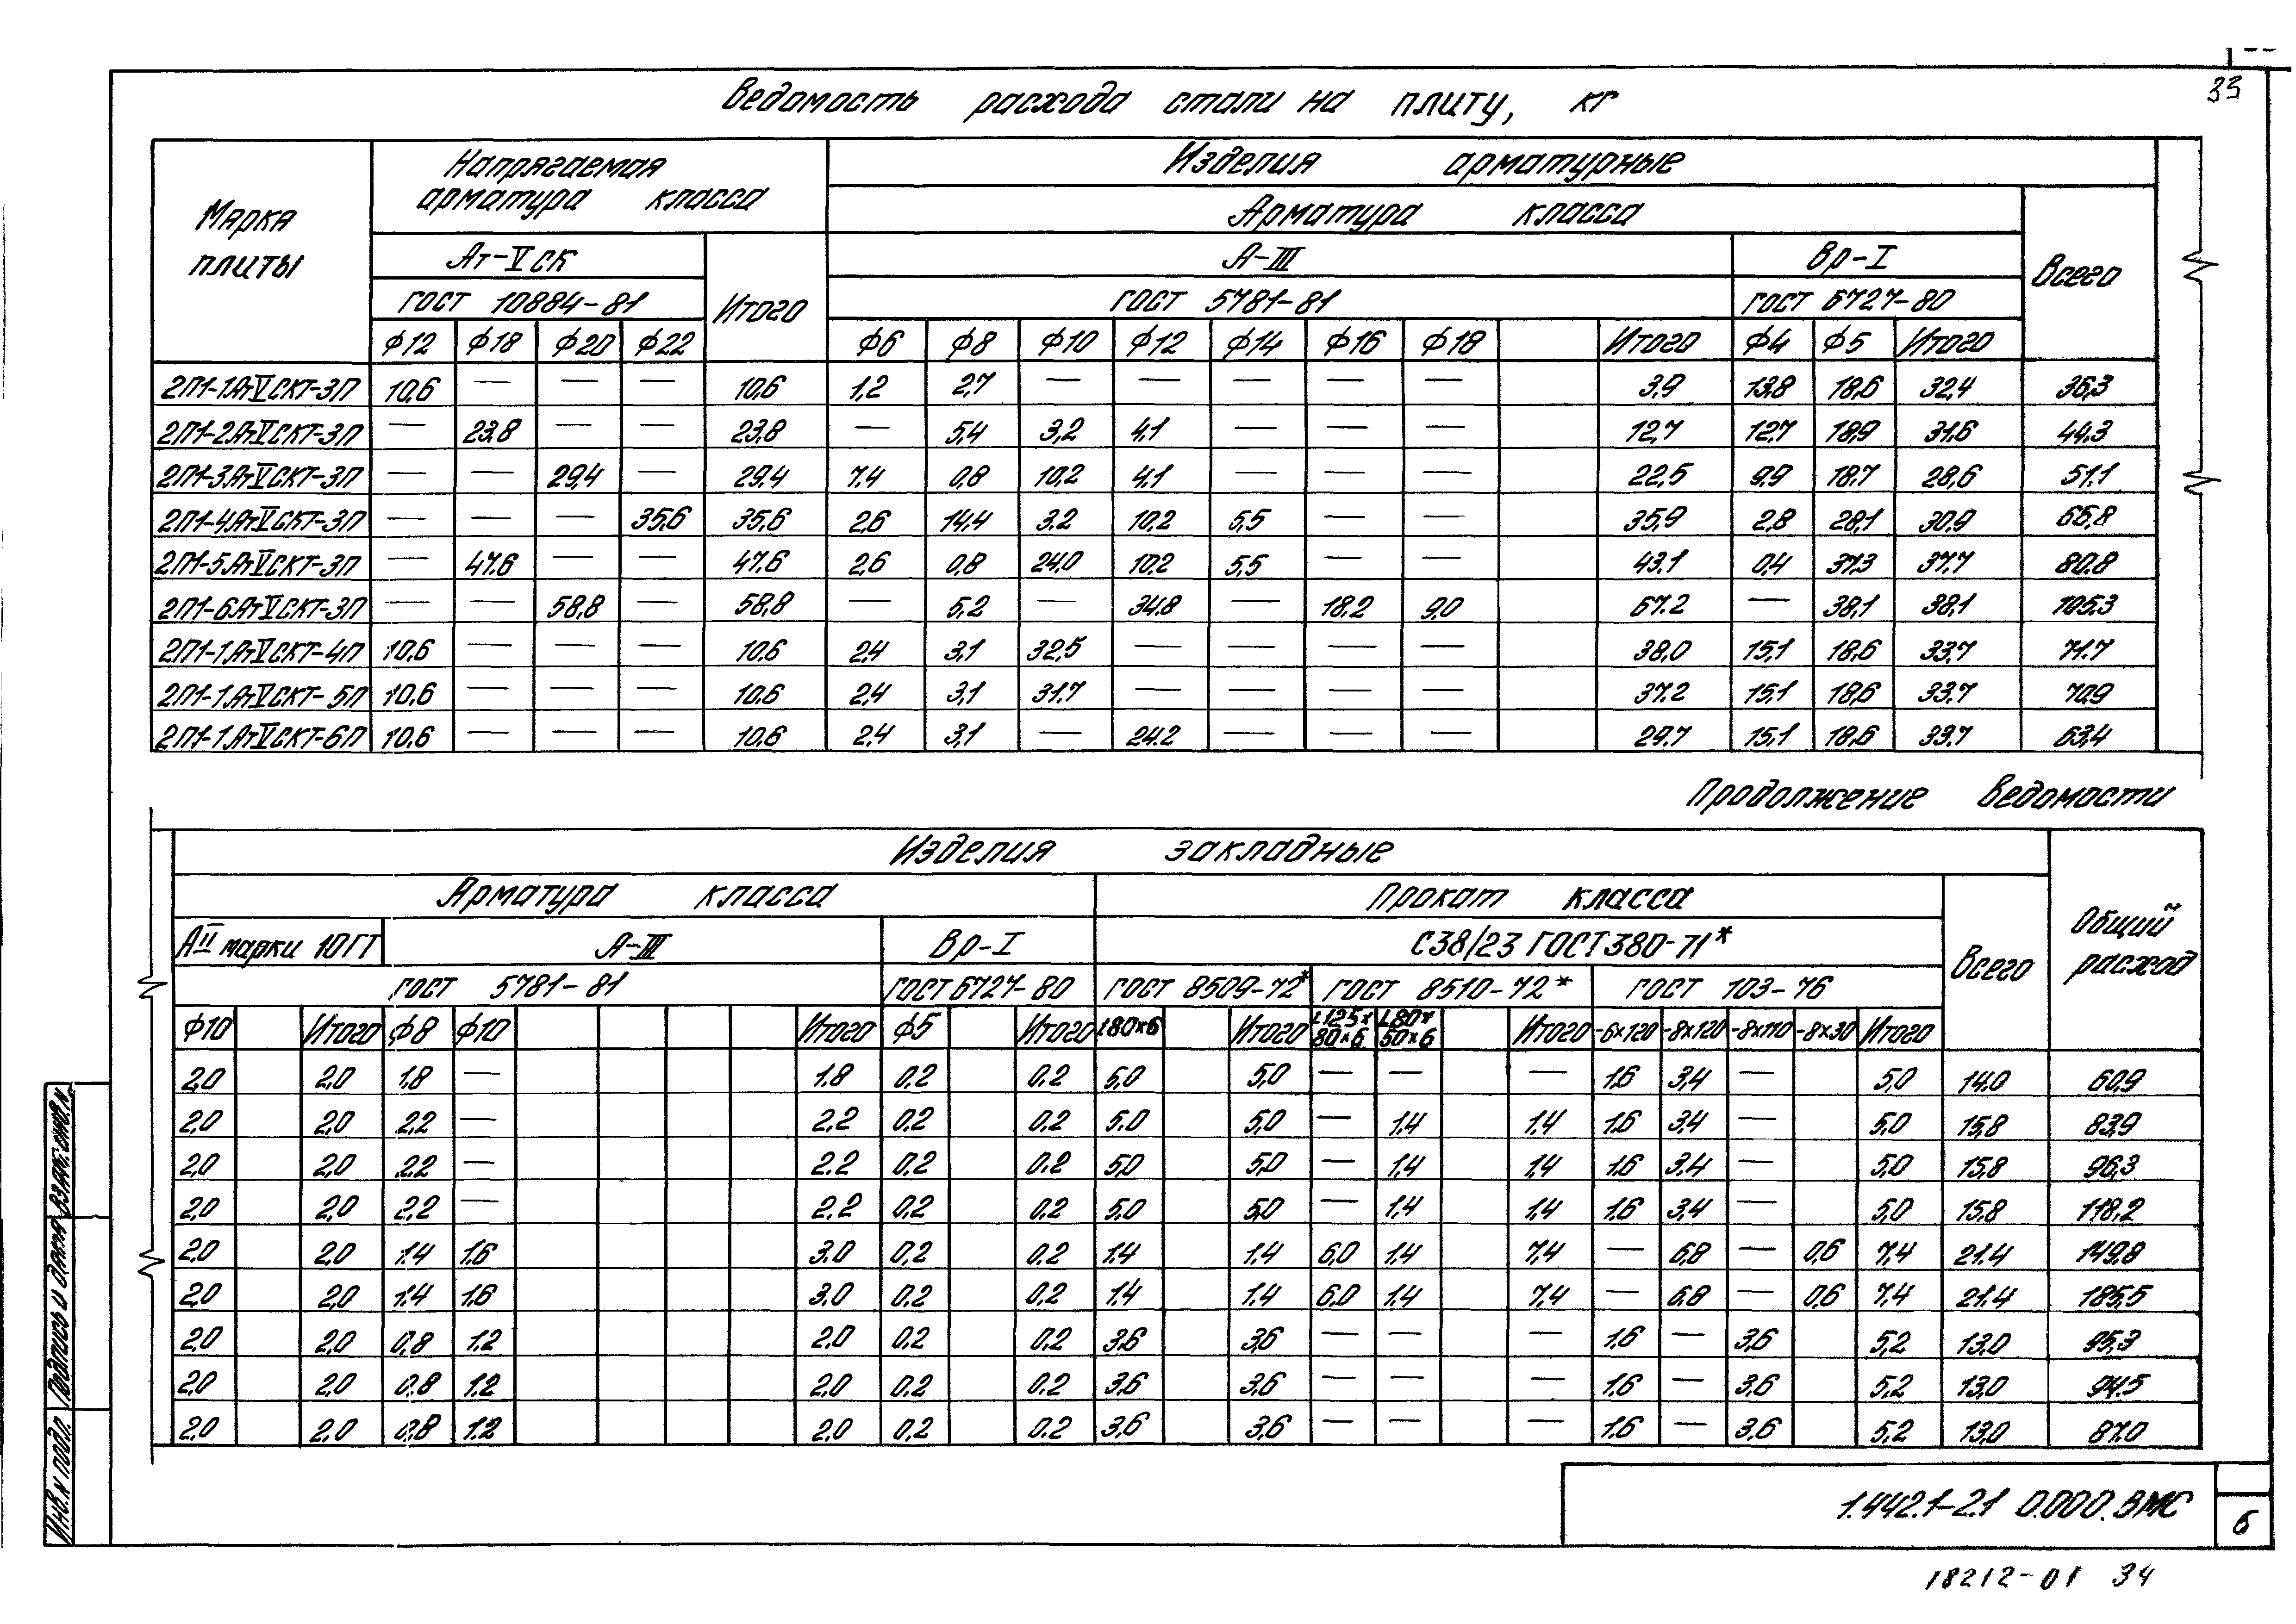 33
Ведомость расхода стали на плиту, кг
Марка плиты
Напрягаемая арматура класса
Изделия арматурные
Арматура класса
Ат-V СК
А-III
Вр-I
Всего
ГОСТ 10884-81
Итого
ГОСТ 5781-81
ГОСТ 6727-80
ф12 ф18 ф20 ф22 ф6 ф8 ф10 ф12 ф14 ф16 ф18 Итого ф4 ф5 Итого
2П1-1АтVСКТ-3П 10,6 — — — 10,6 1,2 2,7 — — — — — 3,9 13,8 18,6 32,4 36,3
2П1-2АтVСКТ-3П — 23,8 — — 23,8 — 5,4 3,2 4,1 — — — 12,7 12,7 18,9 31,6 44,3
2П1-3АтVСКТ-3П — — 29,4 — 29.4 7.4 0,8 10,2 4,1 — — — 22,5 9,9 18,7 28,6 51.1
2П1-4АтVСКТ-3П — — — 35,6 35,6 2,6 14,4 3,2 10,2 5,5 — — 35,9 2,8 28,1 30,9 66,8
2П1-5АтVСКТ-3П — 47.6 — — 47,6 2,6 0,8 24,0 10,2 5,5 — — 43.1 0,4 37,3 37,7 80,8
2П1-6АтVСКТ-3П — — 58,8 — 58,8 — 5,2 — 34,8 — 18,2 9,0 67.2 — 38,1 38,1 105,3
2П1-1АтVСКТ-4П 10,6 — — — 10,6 2,4 3,1 32,5 — — — — 38,0 15,1 18,6 33,7 71.7
2П1-1АтVСКТ-5П 10,6 — — — 10,6 2,4 3,1 31.7 — — — — 37.2 15,1 18,6 33.7 70,9
2П1-1АтVСКТ-6П 10.6 — — — 10,6 2,4 3,1 — 24.2 — — — 29.7 15,1 18,6 33,7 63,4
Продолжение ведомости
Изделия закладные
Общий расход
Арматура класса
Прокат класса
Всего
АII марки 10ГТ
А-III
Вр-I
С38/23 ГОСТ380-71*
ГОСТ 5781-81
ГОСТ 6727-80
ГОСТ 8509-72*
ГОСТ 8510-72*
ГОСТ 103-76
ф10 Итого ф8 ф10 Итого ф5 Итого L80×6 Итого L125×80×6 L80×50×6 Итого -6×120 -8×120 -8×110 -8×30 Итого
2,0 2,0 1,8 — 1.8 0,2 0.2 5,0 5,0 — — — 1,6 3,4 — 5,0 14,0 60,9
2,0 2,0 2,2 — 2,2 0,2 0,2 5,0 5,0 — 1.4 1,4 1,6 3,4 — 5,0 15,8 83,9
2,0 2,0 2,2 — 2.2 0,2 0,2 5,0 5,0 — 1,4 1,4 1,6 3,4 — 5,0 15,8 96,3
2,0 2,0 2,2 — 2,2 0,2 0,2 5,0 5,0 — 1,4 1,4 1,6 3,4 — 5,0 15,8 118,2
2,0 2,0 1.4 1.6 3.0 0,2 0,2 1.4 1.4 6,0 1,4 7,4 — 6,8 — 0,6 7,4 21.4 149,8
2,0 2,0 1.4 1.6 3,0 0,2 0,2 1.4 1.4 6,0 1,4 7,4 — 6,8 — 0,6 7,4 21.4 185,5
2,0 2,0 0,8 1.2 2,0 0,2 0,2 3,6 3,6 — — — 1.6 — 3,6 5,2 13,0 95,3
2,0 2,0 0,8 1.2 2,0 0,2 0,2 3,6 3,6 — — — 1.6 — 3,6 5,2 13,0 94.5
2,0 2,0 0,8 1.2 2,0 0,2 0.2 3,6 3,6 — — — 1.6 — 3,6 5,2 13,0 87.0
Инв.N подл. Подпись и дата Взам.инв.N
1.442.1-2.1 0.000.ВМС
6
18212-01 34